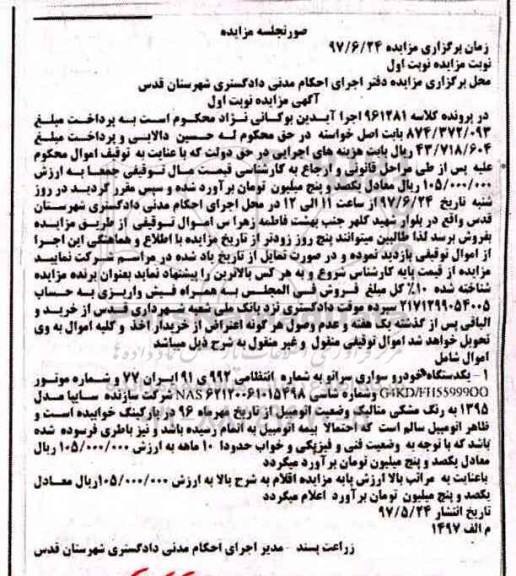 صورتجلسه مزایده
زمان برگزاری مزایده ۹۷/۶/۲۴
نوبت مزایده نوبت اول
محل برگزاری مزایده دفتر اجرای احکام مدنی دادگستری شهرستان قدس
آگهی مزایده نوبت اول
در پرونده کلاسه ۹۶۱۲۸۱ اجرا آیدین بوکانی نژاد محکوم است به پرداخت مبلغ
۸۷۴/۳۷۲/۰۹۳ بابت اصل خواسته در حق محکوم له حسین دالایی و پرداخت مبلغ
۴۳/۷۱۸/۶۰۴ ریال بابت هزینه های اجرایی در حق دولت که با عنایت به توقیف اموال محکوم
علیه پس از طی مراحل قانونی و ارجاع به کارشناسی قیمت مال توقیفی جمعا به ارزش
۱۰۵/۰۰۰/۰۰۰ ریال معادل یکصد و پنج میلیون تومان برآورد شده و سپس مقرر گردید در روز
شنبه تاریخ ۹۷/۶/۲۴ از ساعت ۱۱ الی ۱۲ در محل اجرای احکام مدنی دادگستری شهرستان
قدس واقع در بلوار شهید کلهر جنب بهشت فاطمه زهرا س اموال توقیفی از طریق مزایده
بفروش برسد لذا طالبین میتوانند پنج روز زودتر از تاریخ مزایده با اطلاع و هماهنگی این اجرا
از اموال توقیفی بازدید نموده و در صورت تمایل از تاریخ یاد شده در مراسم شرکت نمایید
مزایده از قیمت پایه کارشناس شروع و به هر کس بالاترین را پیشنهاد نماید بعنوان برنده مزایده
شناخته شده ۱۰٪ کل مبلغ فروش فی المجلس به همراه فیش واریزی به حساب
۲۱۷۱۲۹۹۰۵۴۰۰۵ سپرده موقت دادگستری نزد بانک ملی شعبه شهرداری قدس از خرید و
الباقی پس از گذشته یک هفته و عدم وصول هر گونه اعتراض از خریدار اخذ و کلیه اموال به وی
تحویل خواهد شد اموال توقیفی منقول و غیر منقول به شرح ذیل میباشد
اموال شامل
۱- یکدستگاه خودرو سواری سراتو به شماره انتظامی ۹۹۲ ی ۹۱ ایران ۷۷ و شماره موتور
G4KD/FH559990 و شماره شاسی NAS ۶۲۱۲۰۰۶۱۰۱۵۴۹۸ شرکت سازنده سایپا مدل
۱۳۹۵ به رنگ مشکی متالیک وضعیت اتومبیل از تاریخ مهرماه ۹۶ در پارکینگ خوابیده است و
ظاهر اتومبیل سالم است که احتمالا بیمه اتومبیل به اتمام رسیده باشد و نیز باطری فرسوده شده
باشد که با توجه به وضعیت فنی و فیزیکی و خواب حدودا ۱۰ ماهه به ارزش ۱۰۵/۰۰۰/۰۰۰ ریال
معادل یکصد و پنج میلیون تومان برآورد میگردد
باعنایت به مراتب بالا ارزش پایه مزایده اقلام به شرح بالا به ارزش ۱۰۵/۰۰۰/۰۰۰ریال معادل
یکصد و پنج میلیون تومان برآورد اعلام میگردد
تاریخ انتشار ۹۷/۵/۲۴
م الف ۱۴۹۷
زراعت پسند - مدیر اجرای احکام مدنی دادگستری شهرستان قدس